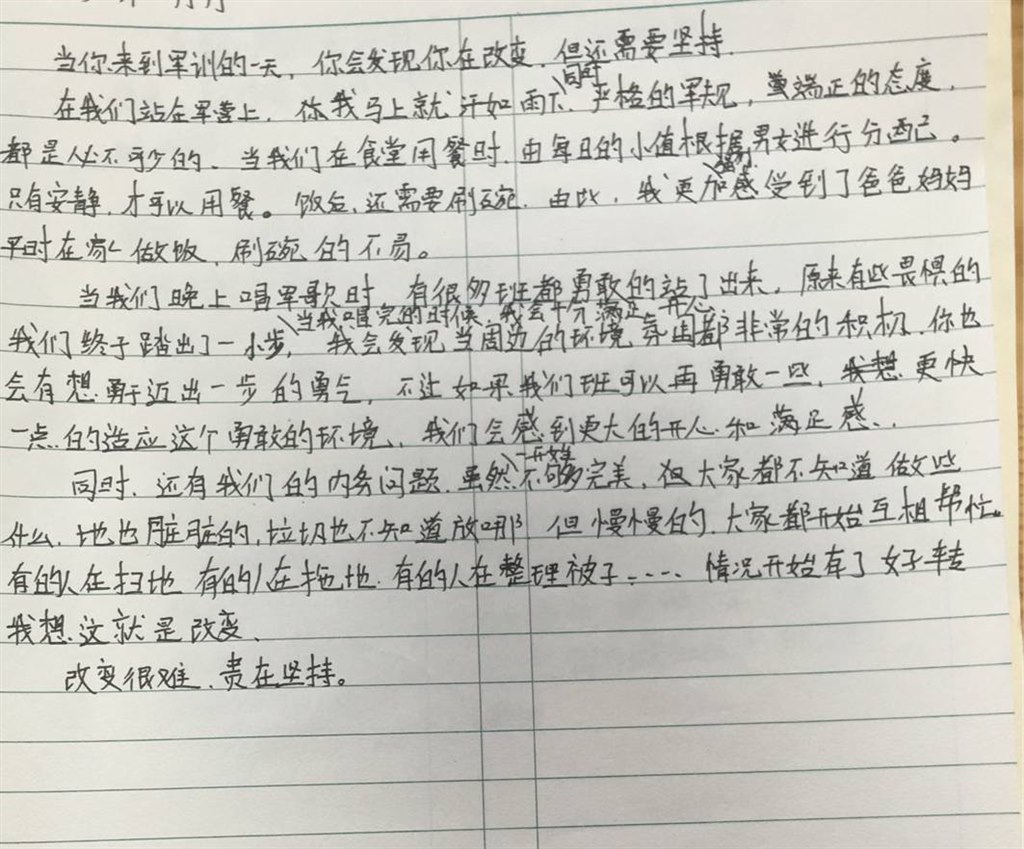 当你来到军训的一天，你会发现你在改变，但还需要坚持.
同时
在我们站在军营上，你我马上就汗如雨下、严格的军规，端正的态度，
都是必不可少的、当我们在食堂用餐时，由每日的小值根据男女进行分配。
只有安静，才可以用餐。饭后，还需要刷碗，由此，我更加感受到了爸爸妈妈
平时在家做饭、刷碗的不易。
当我们晚上唱军歌时，有很多班都勇敢的站了出来，原来有些畏惧的
当我唱完的时候，我会十分满足、开心
我们终于踏出了一小步，我会发现当周边的环境、氛围都非常的积极，你也
会有想勇于迈出一步的勇气，不过如果我们班可以再勇敢一些，我想更快
一点的适应这个勇敢的环境，我们会感到更大的开心和满足感.
一开始
同时，还有我们的内务问题，虽然不够完美，但大家都不知道做些
什么，地也脏脏的，垃圾也不知道放哪，但慢慢的，大家都开始互相帮忙。
有的人在扫地，有的人在拖地，有的人在整理被子……情况开始有了好转
我想这就是改变、
改变很难、贵在坚持。